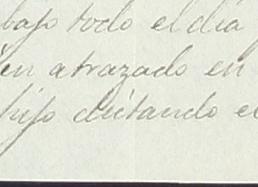 bajo todo el dia
en atrazado en
hijo dictando el